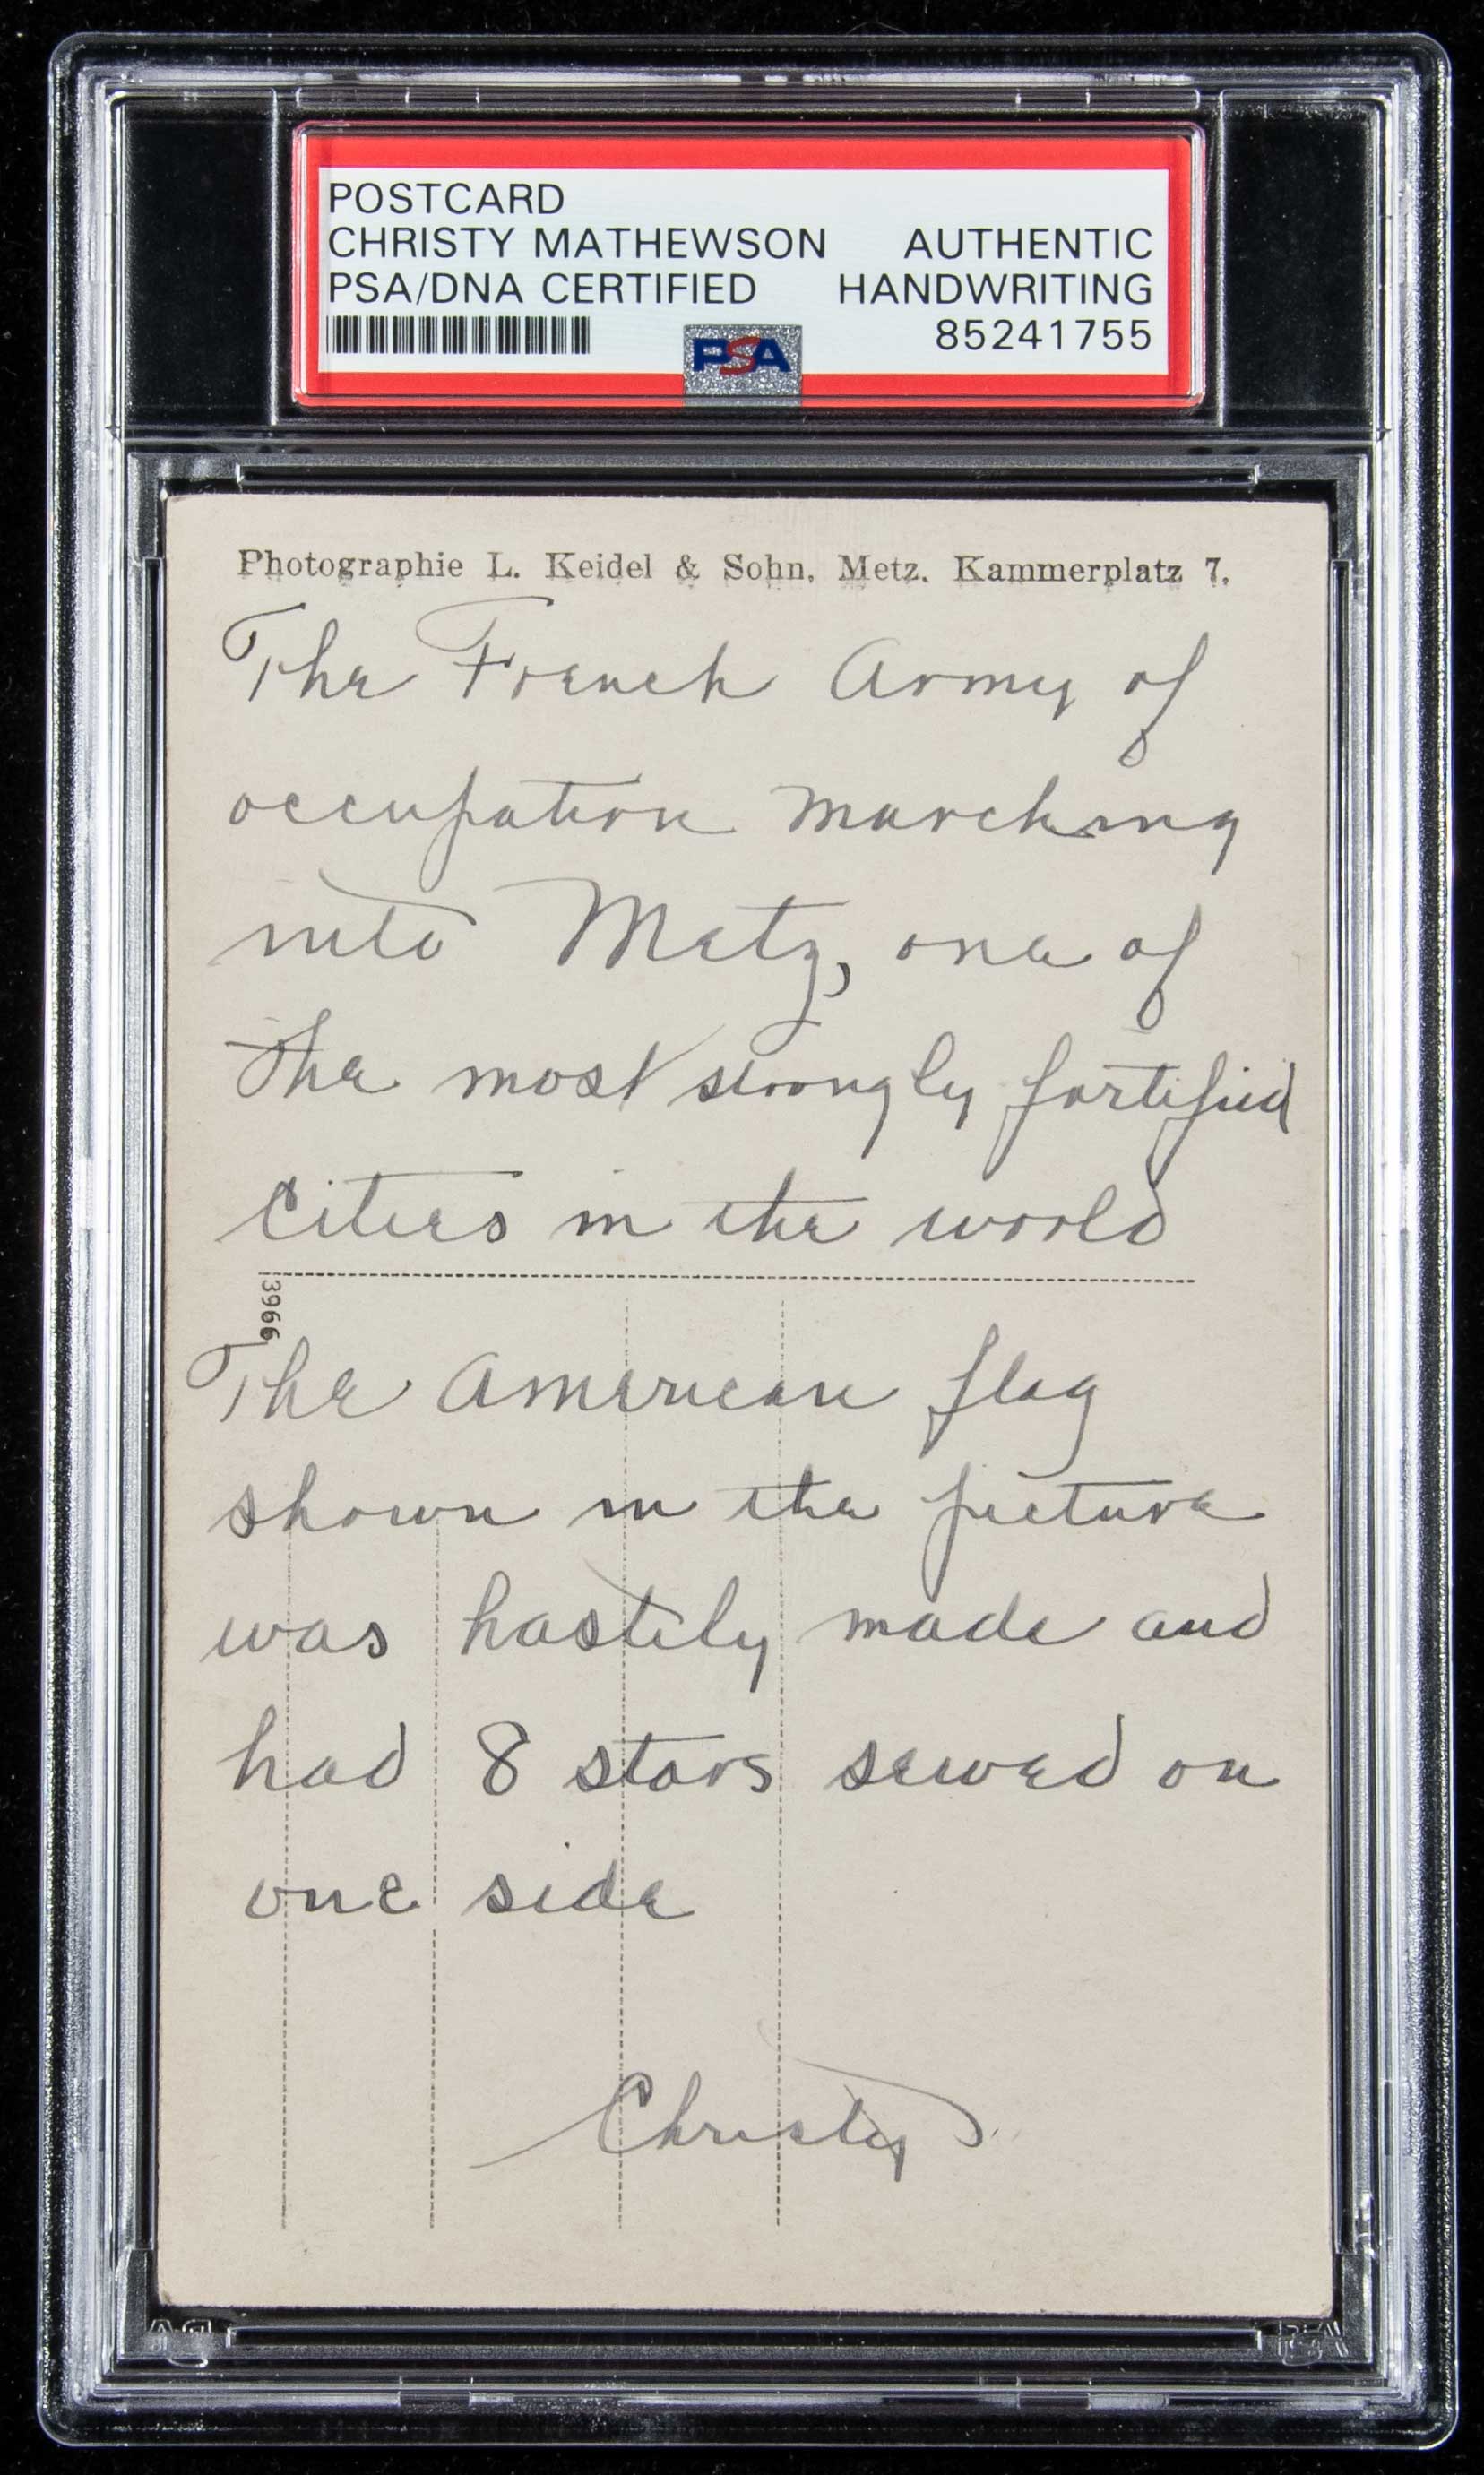 POSTCARD
CHRISTY MATHEWSON AUTHENTIC
PSA/DNA CERTIFIED HANDWRITING
85241755
PSA
Photographie L. Keidel & Sohn, Metz. Kammerplatz 7.
The French Army of
occupation marching
into Metz, one of
the most strongly fortified
cities in the world
3966
The American flag
shown in the picture
was hastily made and
had 8 stars sewed on
one side
Christy